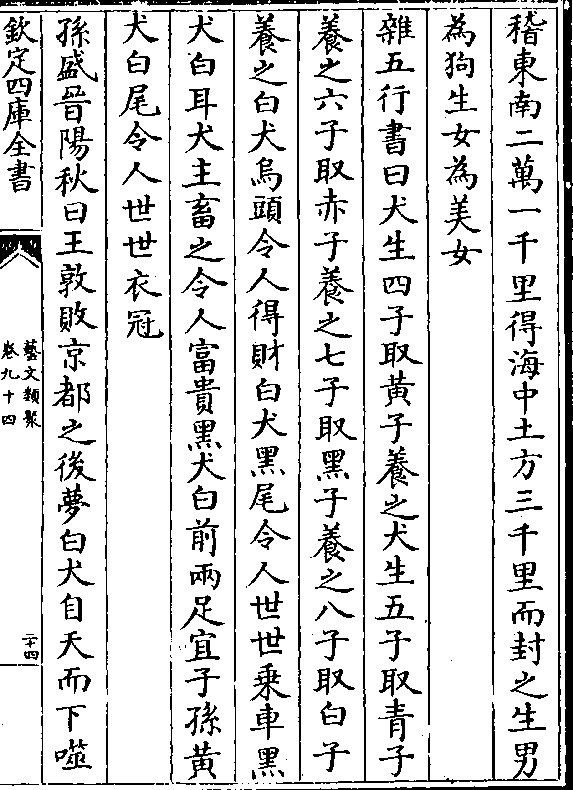 稽東南二萬一千里得海中土方三千里而封之生男
為狗生女為美女
雜五行書曰犬生四子取黃子養之犬生五子取青子
養之六子取赤子養之七子取黑子養之八子取白子
養之白犬烏頭令人得財白犬黑尾令人世世乗車黑
犬白耳犬主畜之令人富貴黑犬白前兩足宜子孫黃
犬白尾令人世世衣冠
孫盛晉陽秋曰王敦敗京都之後夢白犬自天而下噬
欽定四庫全書
藝文類聚
卷九十四
二十四